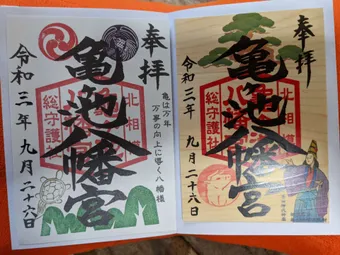 奉拝
亀ヶ池八幡宮
北相模
総守護社
亀は万年
万事の向上に導く八幡様
令和三年九月二十六日
奉拝
亀ヶ池八幡宮
北相模
総守護社
令和三年九月二十六日